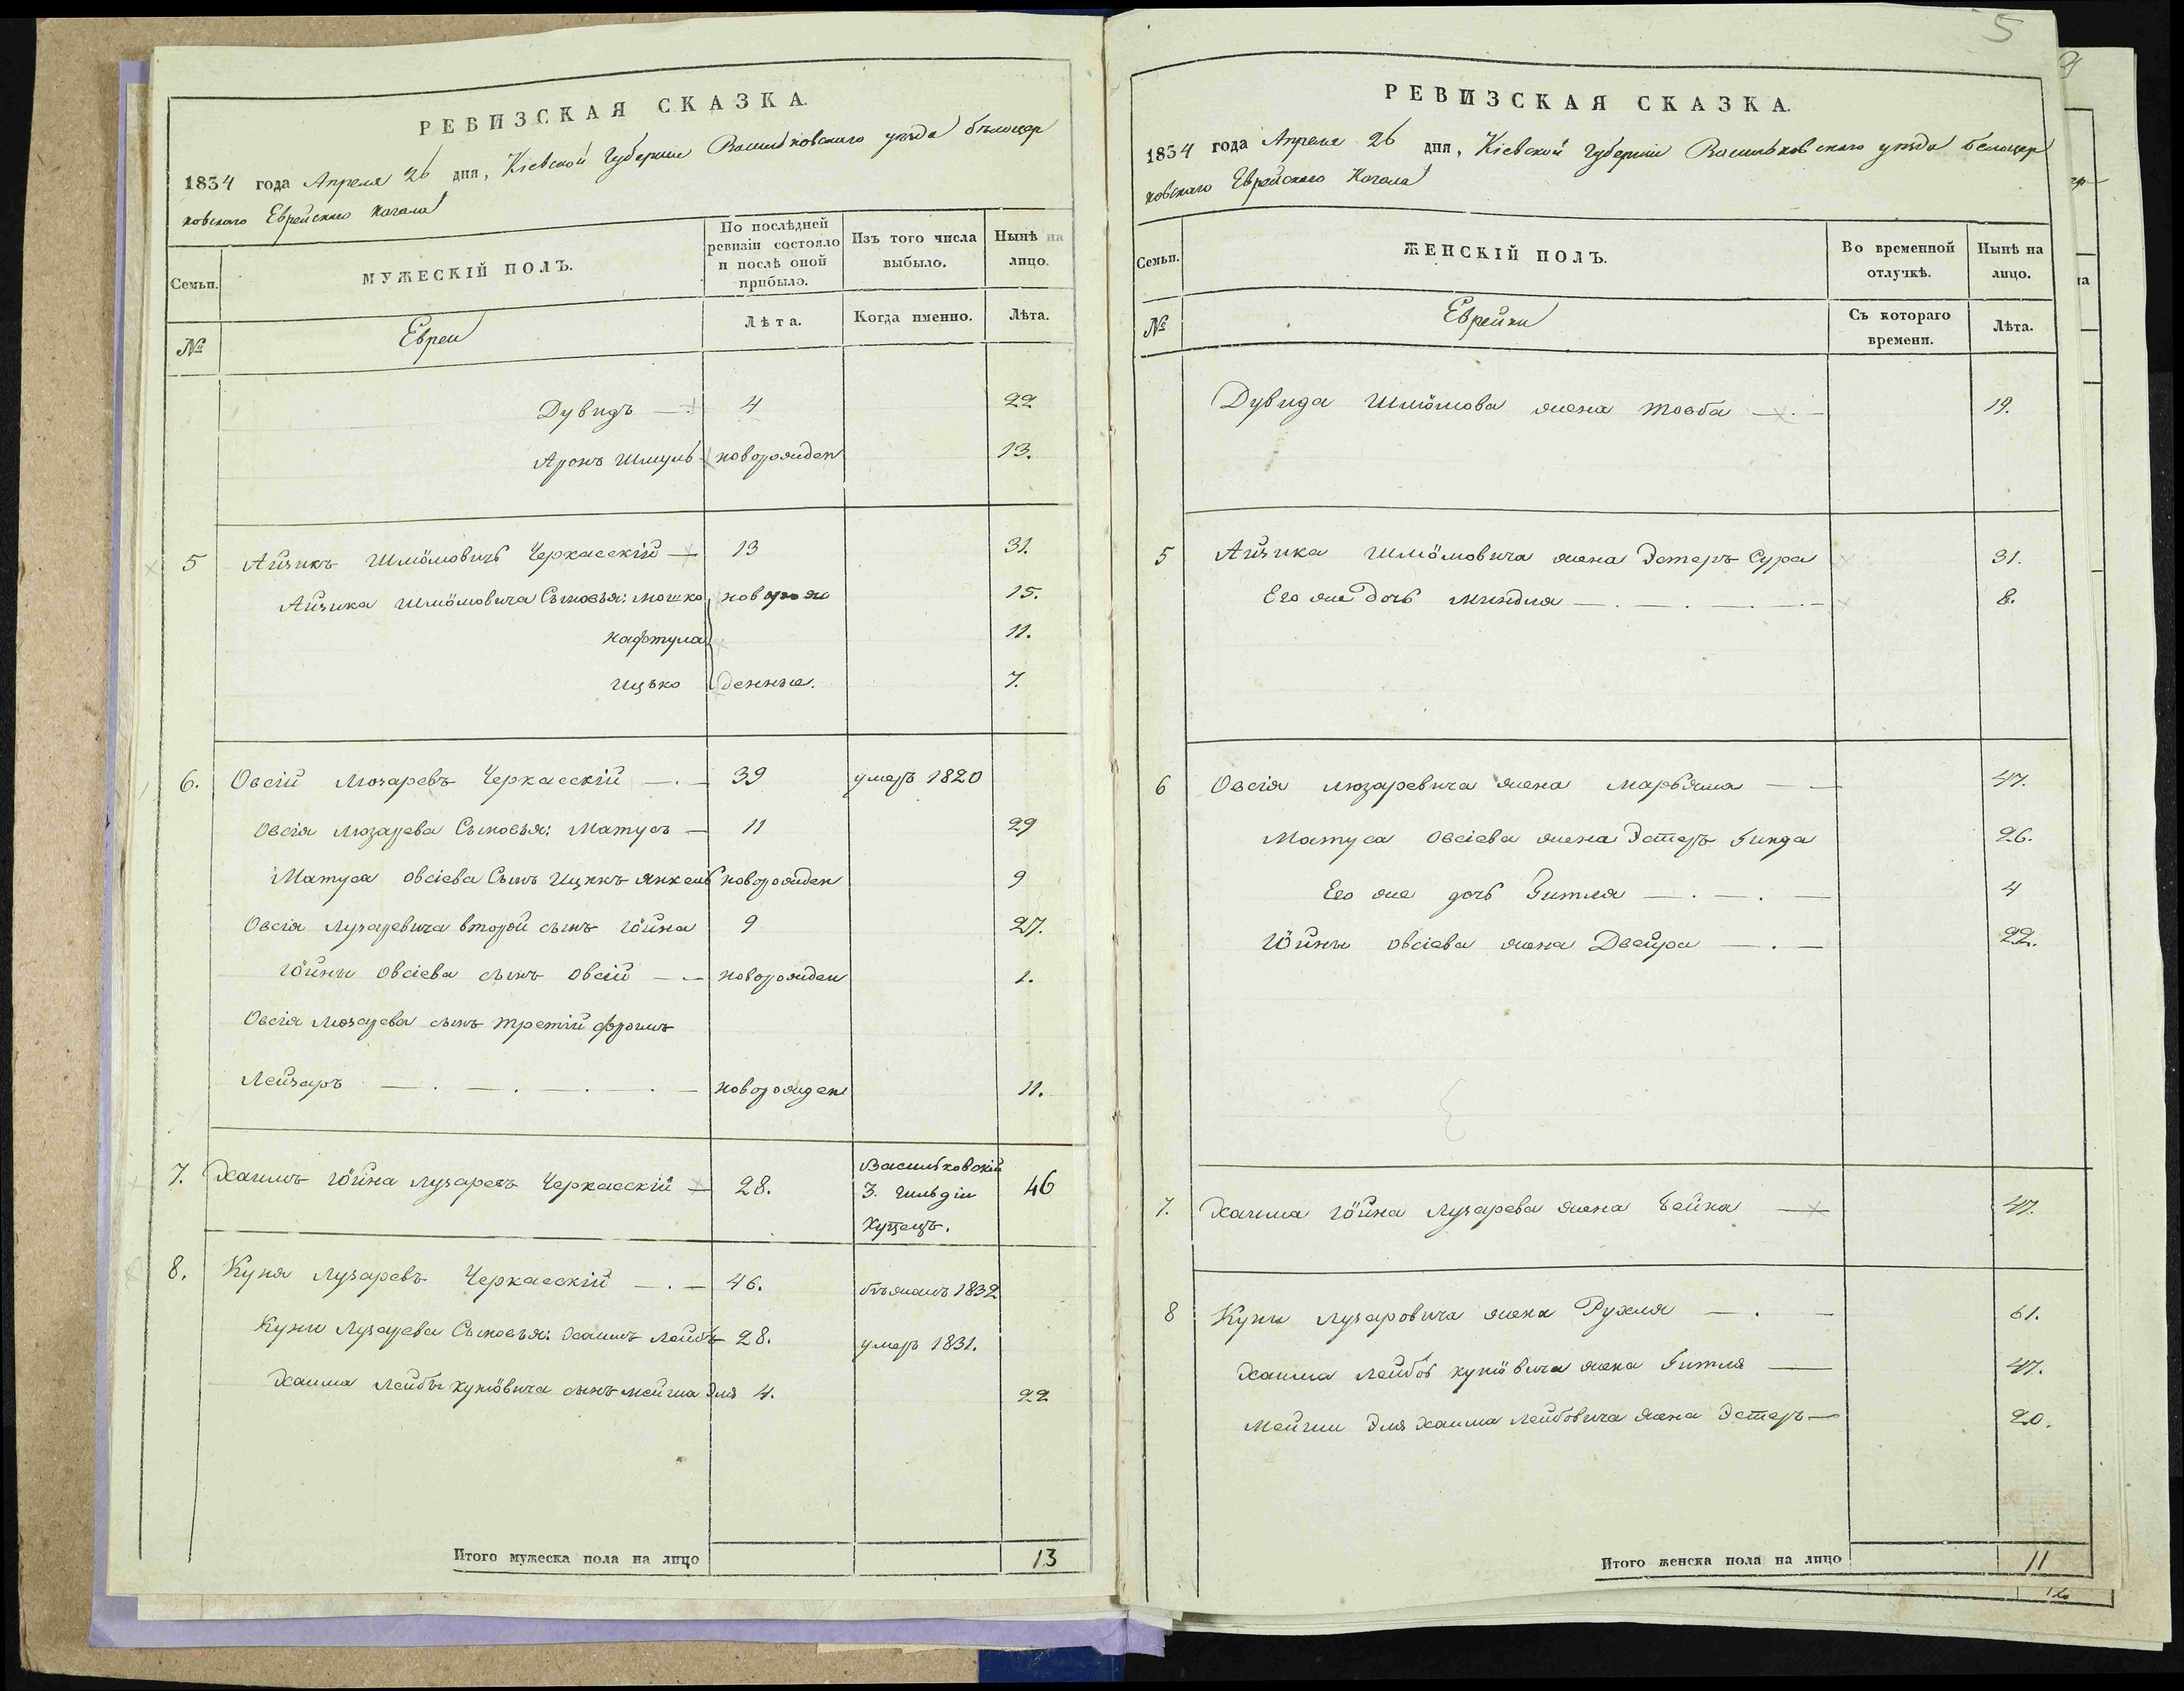 РЕВИЗСКАЯ СКАЗКА.
1834 года Апреля 26 дня, Кіевской Губерніи Васильковскаго уезда белоцер
ковскаго Еврейскаго Кагала
Семьи.
МУЖЕСКІЙ ПОЛЪ.
По послѣдней ревизіи состояло и послѣ оной прибыло.
Изъ того числа выбыло.
Нынѣ на лицо.
№
Евреи
Лѣта.
Когда именно.
Лѣта.
Дувидъ 4 22
Аронъ Шмуль новорожден 13.
5 Айзикъ Шліомовичъ Черкасскій 13 31.
Айзика Шліомовича Сыновья: мошко новорож 15.
нафтула 11.
Ицько денные. 7.
6. Овсій Люзаревъ Черкасскій 39 умеръ 1820
Овсія Люзарева Сыновья: Матусъ 11 29
Матуса Овсіева Сынъ Ицикъ Янкель новорожден 9
Овсія Лузаревича второй сынъ Іойна 9 27.
Іойны Овсіева сынъ Овсій новорожден 1.
Овсія Люзарева сынъ третій фроимъ
Лейзаръ новорожден 11.
7. Хаимъ Іойна Лузаревъ Черкасскій 28. Васильковскій 3. Гильдіи Купецъ. 46
8. Куня Лузаревъ Черкасскій 46. бѣжалъ 1832
Куни Лузарева Сыновья: Хаимъ Лейбъ 28. умеръ 1831.
Хаима Лейбы Куніовича сынъ мейша Эля 4. 22
Итого мужеска пола на лицо 13
5
РЕВИЗСКАЯ СКАЗКА.
1834 года Апреля 26 дня, Кіевской Губерніи Васильковскаго уезда белоцер
ковскаго Еврейскаго Кагала
Семьи.
ЖЕНСКІЙ ПОЛЪ.
Во временной отлучкѣ.
Нынѣ на лицо.
№
Еврейки
Съ котораго времени.
Лѣта.
Дувида Шліомова жена товба 19.
5 Айзика Шліомовича жена Эстеръ Сура 31.
Его же дочь миндля 8.
6 Овсія Люзаревича жена Марьяма 47.
Матуса Овсіева жена Эстеръ Гинда 26.
Его же дочь Гитля 4
Іойны Овсіева жена Двейра 22.
7. Хаима Іойна Лузарева жена Бейна 47.
8 Куни Лузаровича жена Рухля 61.
Хаима Лейбы Куніовича жена Гитля 47.
Мейши Эля Хаима Лейбовича жена Эстеръ 20.
Итого женска пола на лицо 11